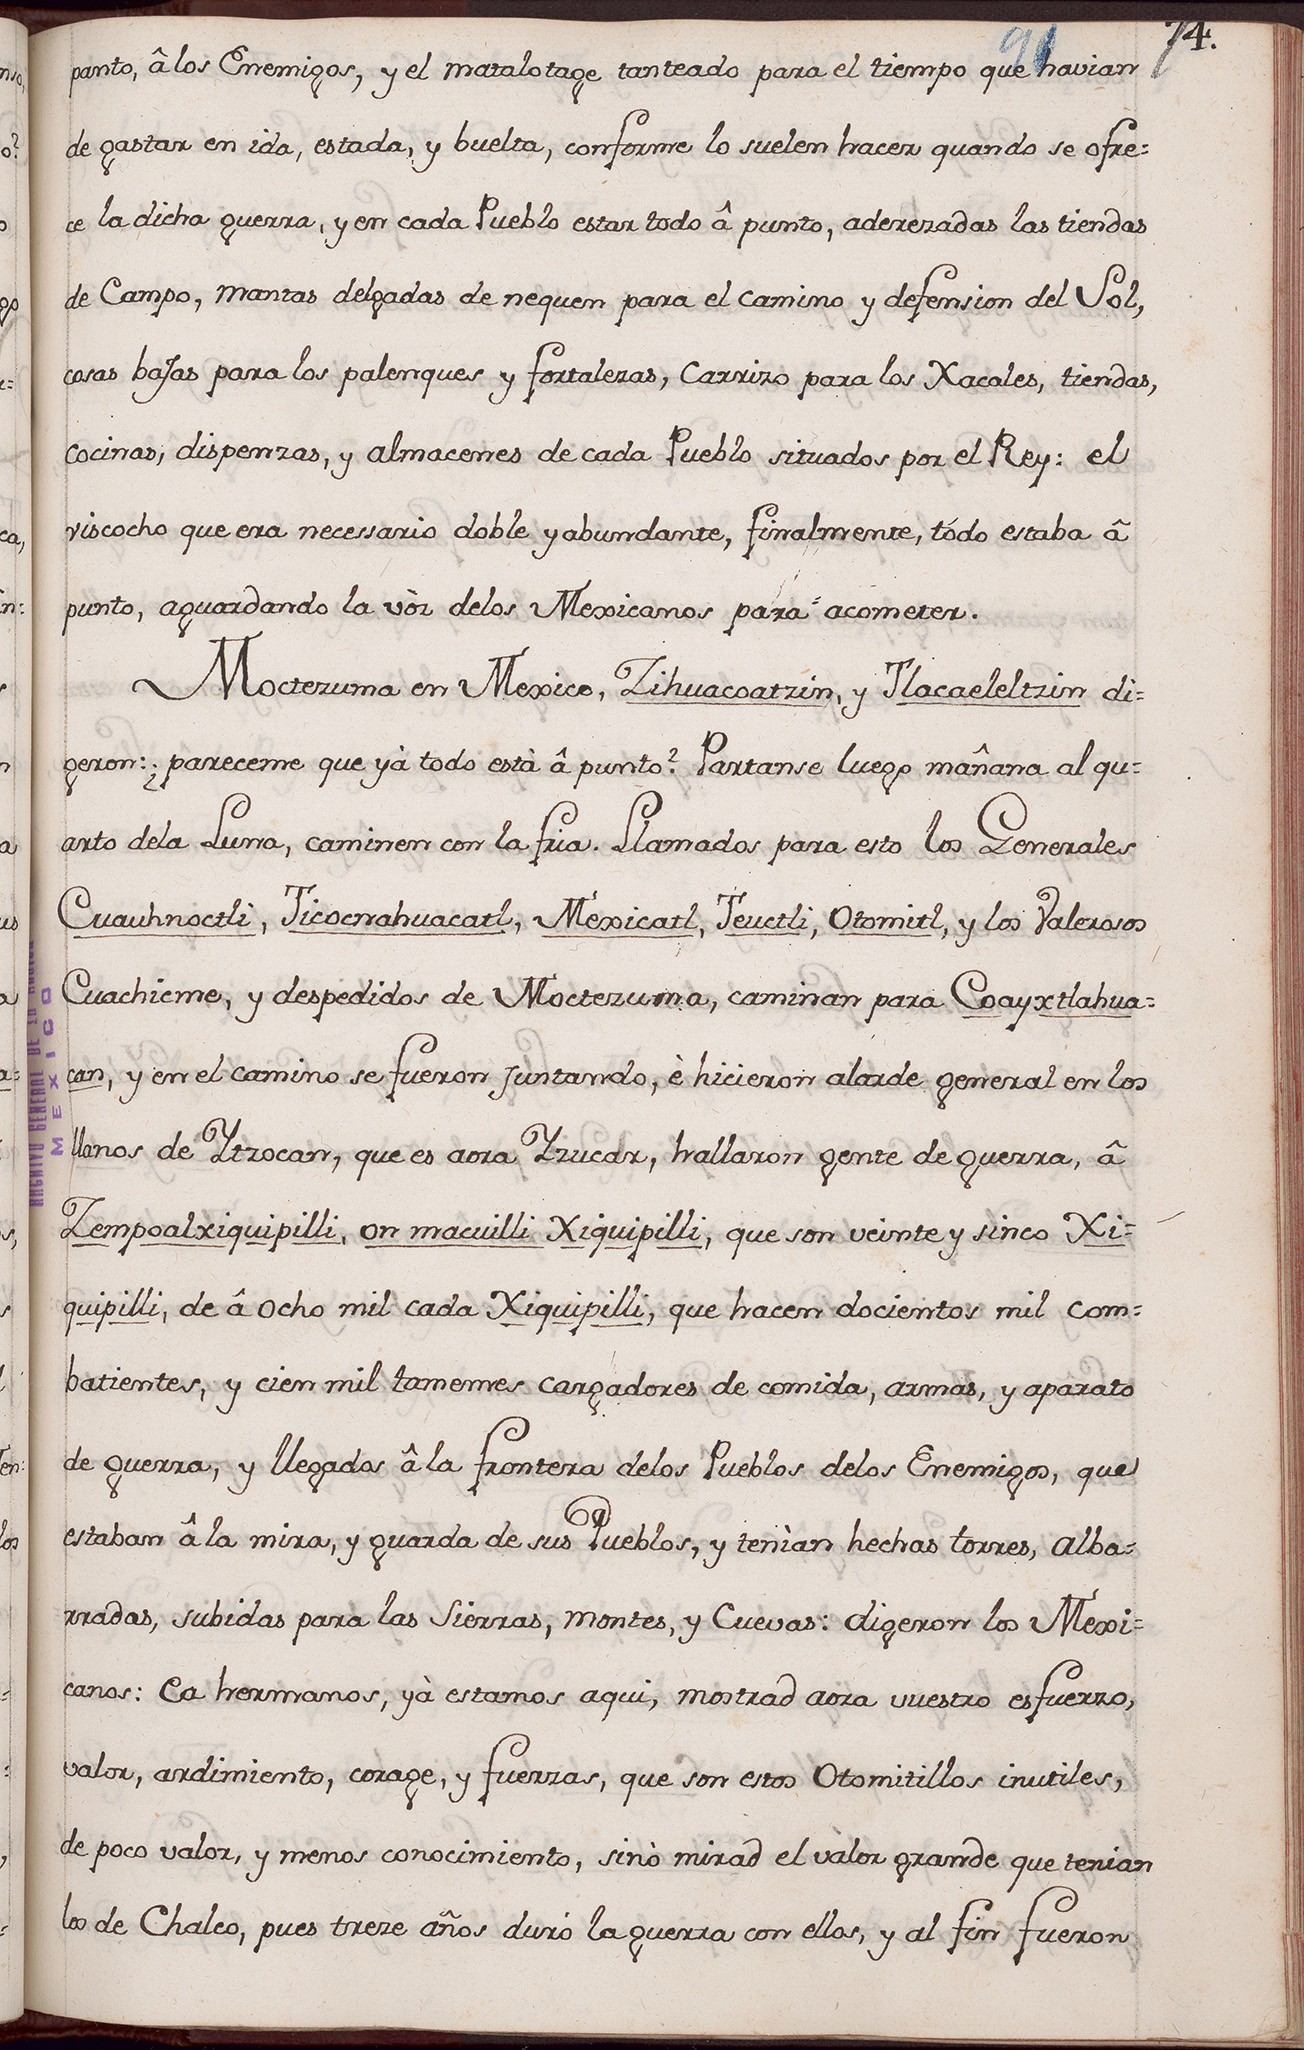 91 74.
panto, â los Enemigos, y el matalotage tanteado para el tiempo que havian
de gastar en ida, estada, y buelta, conforme lo suelen hacer quando se ofre=
ce la dicha guerra, y en cada Pueblo estar todo â punto, aderezadas las tiendas
de Campo, mantas delgadas de nequen para el camino y defension del Sol,
cosas bajas para los palenques y fortalezas, Carrizo para los Xacales, tiendas,
cocinas, dispenzas, y almacenes de cada Pueblo situados por el Rey: el
viscocho que era necessario doble y abundante, finalmente, todo estaba â
punto, aguardando la vòz delos Mexicanos para acometer.
Moctezuma en Mexico, Zihuacoatzin, y Tlacaeleltzin di=
geron: ¿pareceme que yà todo està â punto? Partanse luego mañana al qu=
arto dela Luna, caminen con la fria. Llamados para esto los Generales
Cuauhnoctli, Ticocnahuacatl, Mexicatl, Teuctli, Otomitl, y los Valerosos
Cuachicme, y despedidos de Moctezuma, caminan para Coayxtlahua=
can, y en el camino se fueron juntando, è hicieron alarde general en los
llanos de Ytzocan, que es aora Yzucar, hallaron gente de guerra, â
Zempoalxiquipilli, on macuilli Xiquipilli, que son veinte y sinco Xi=
quipilli, de â ocho mil cada Xiquipilli, que hacen docientos mil com=
batientes, y cien mil tamemes cargadores de comida, armas, y aparato
de guerra, y llegados â la frontera delos Pueblos delos Enemigos, que
estaban â la mira, y guarda de sus Pueblos, y tenian hechas torres, alba=
rradas, subidas para las Sierras, montes, y Cuevas: digeron los Mexi=
canos: Ea hermanos, yà estamos aqui, mostrad aora vuestro esfuerzo,
valor, ardimiento, corage, y fuerzas, que son estos Otomitillos inutiles,
de poco valor, y menos conocimiento, sinò mirad el valor grande que tenian
los de Chalco, pues treze años duró la guerra con ellos, y al fin fueron
ARCHIVO GENERAL DE LA NACION
MEXICO